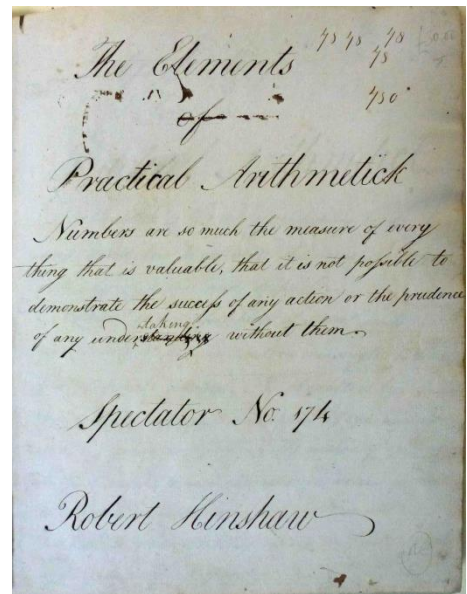 The Elements
of
Practical Arithmetick
Numbers are so much the measure of every
thing that is valuable, that it is not poſsible to
demonstrate the succeſs of any action or the prudence
of any undertaking without them
Spectator No. 174
Robert Hinshaw